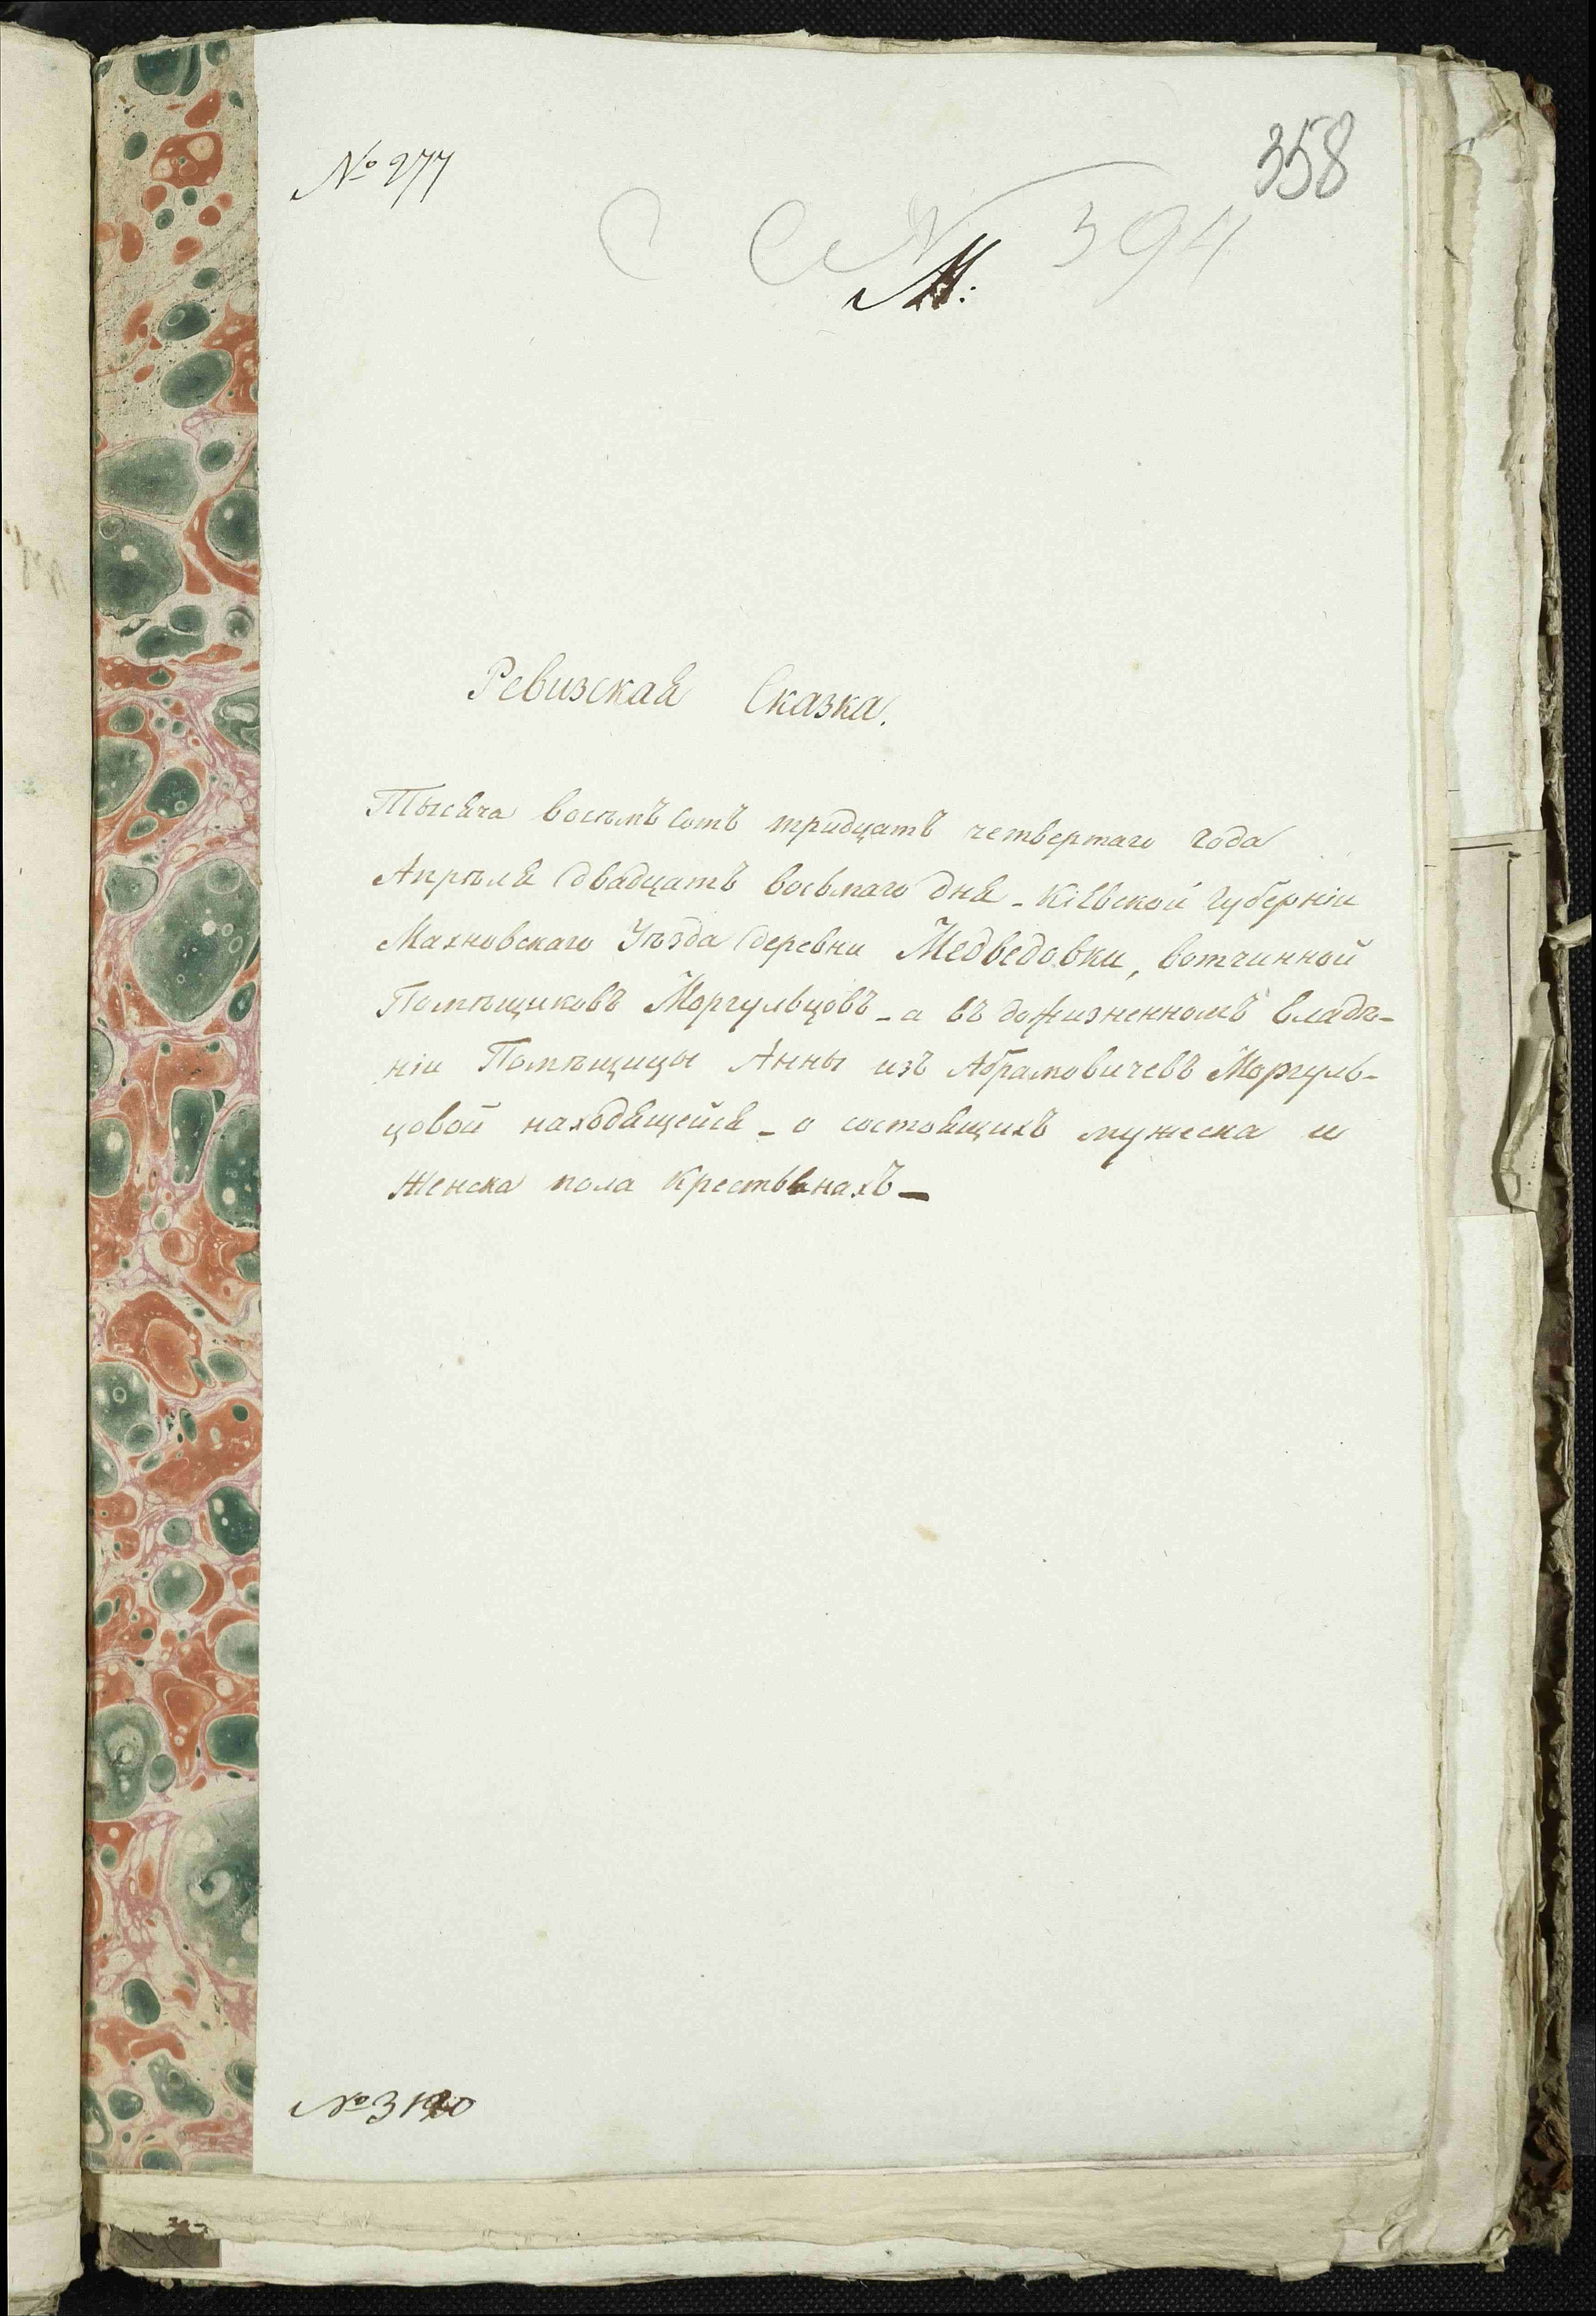 № 277
358
№ 394
М:
Ревизская Сказка.
Тысяча восемъ сотъ тридцать четвертаго года
Апрѣля двадцать восьмаго дня - Кіевской губерніи
Махновскаго Уѣзда деревни Медведовки, вотчинной
Помѣщиковъ Моргульцовъ - а въ дожизненномъ владѣ-
ніи Помѣщицы Анны изъ Абрамовичевъ Моргуль-
цовой находящейся - о состоящихъ мужеска и
женска пола крестьянахъ -